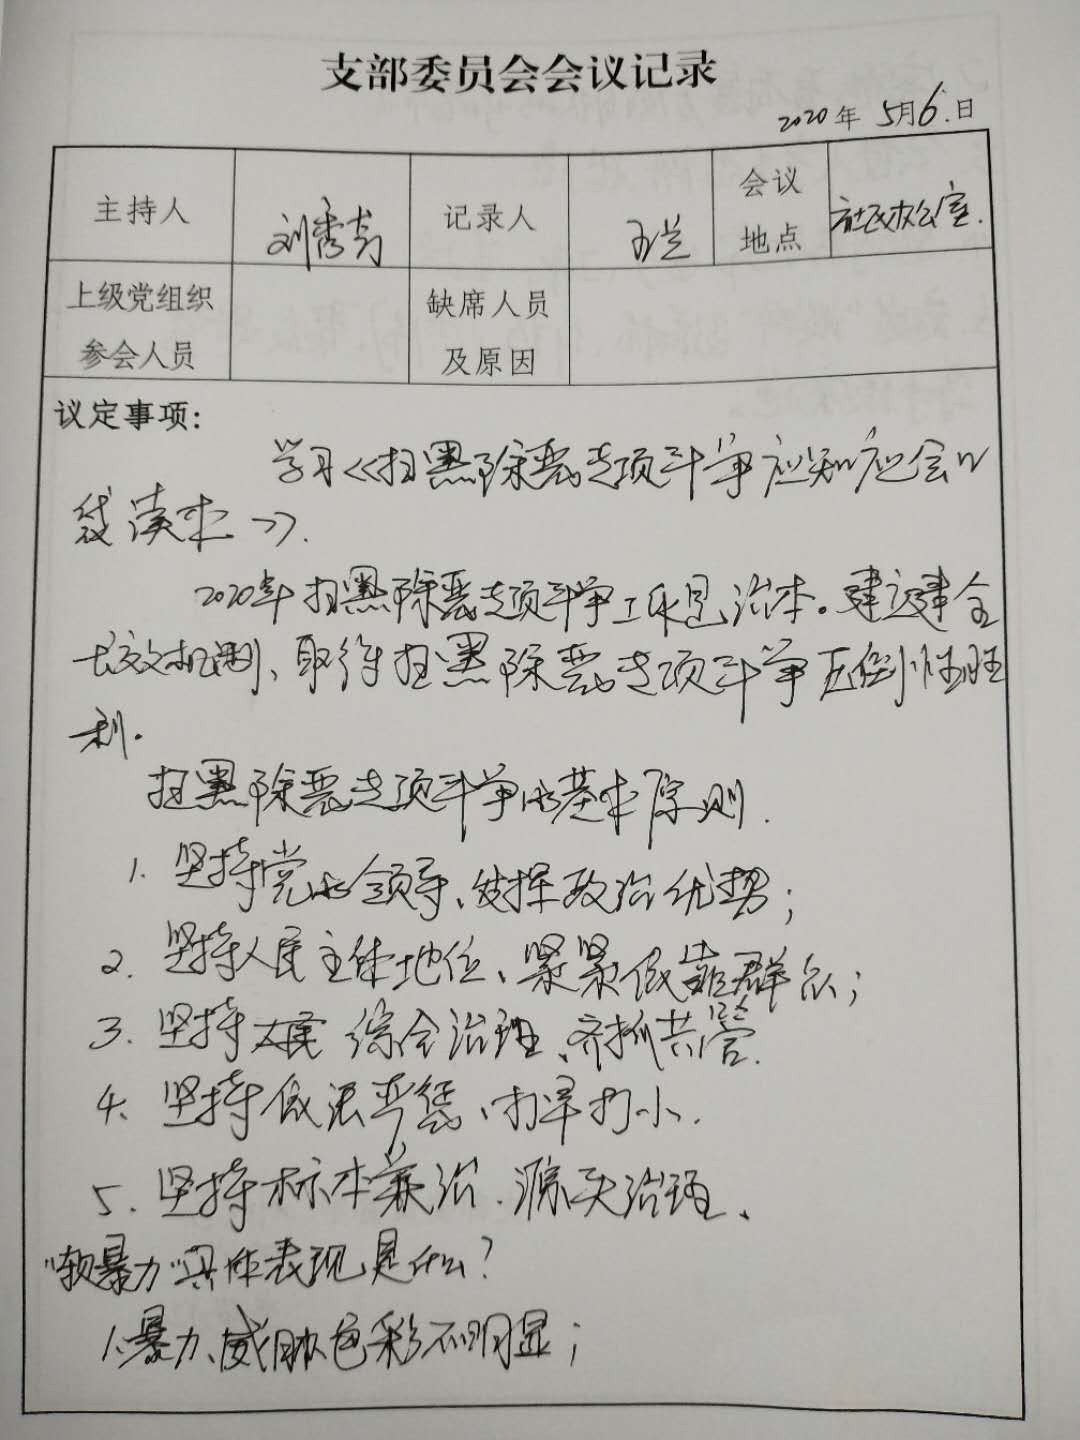 支部委员会会议记录
2020年 5月6日
主持人 刘秀芳 记录人 王兰 会议地点 社区办公室.
上级党组织参会人员 缺席人员及原因
议定事项：
学习《扫黑除恶专项斗争应知应会口
袋读本》.
2020年扫黑除恶专项斗争工作是治本。建立健全
长效机制、取得扫黑除恶专项斗争压倒性胜
利.
扫黑除恶专项斗争的基本原则.
1. 坚持党的领导、发挥政治优势；
2. 坚持人民主体地位、紧紧依靠群众；
3. 坚持 综合治理、齐抓共管.
4. 坚持依法严惩、打早打小.
5. 坚持标本兼治.源头治理、
"软暴力"具体表现是什么？
1、暴力、威胁色彩不明显；